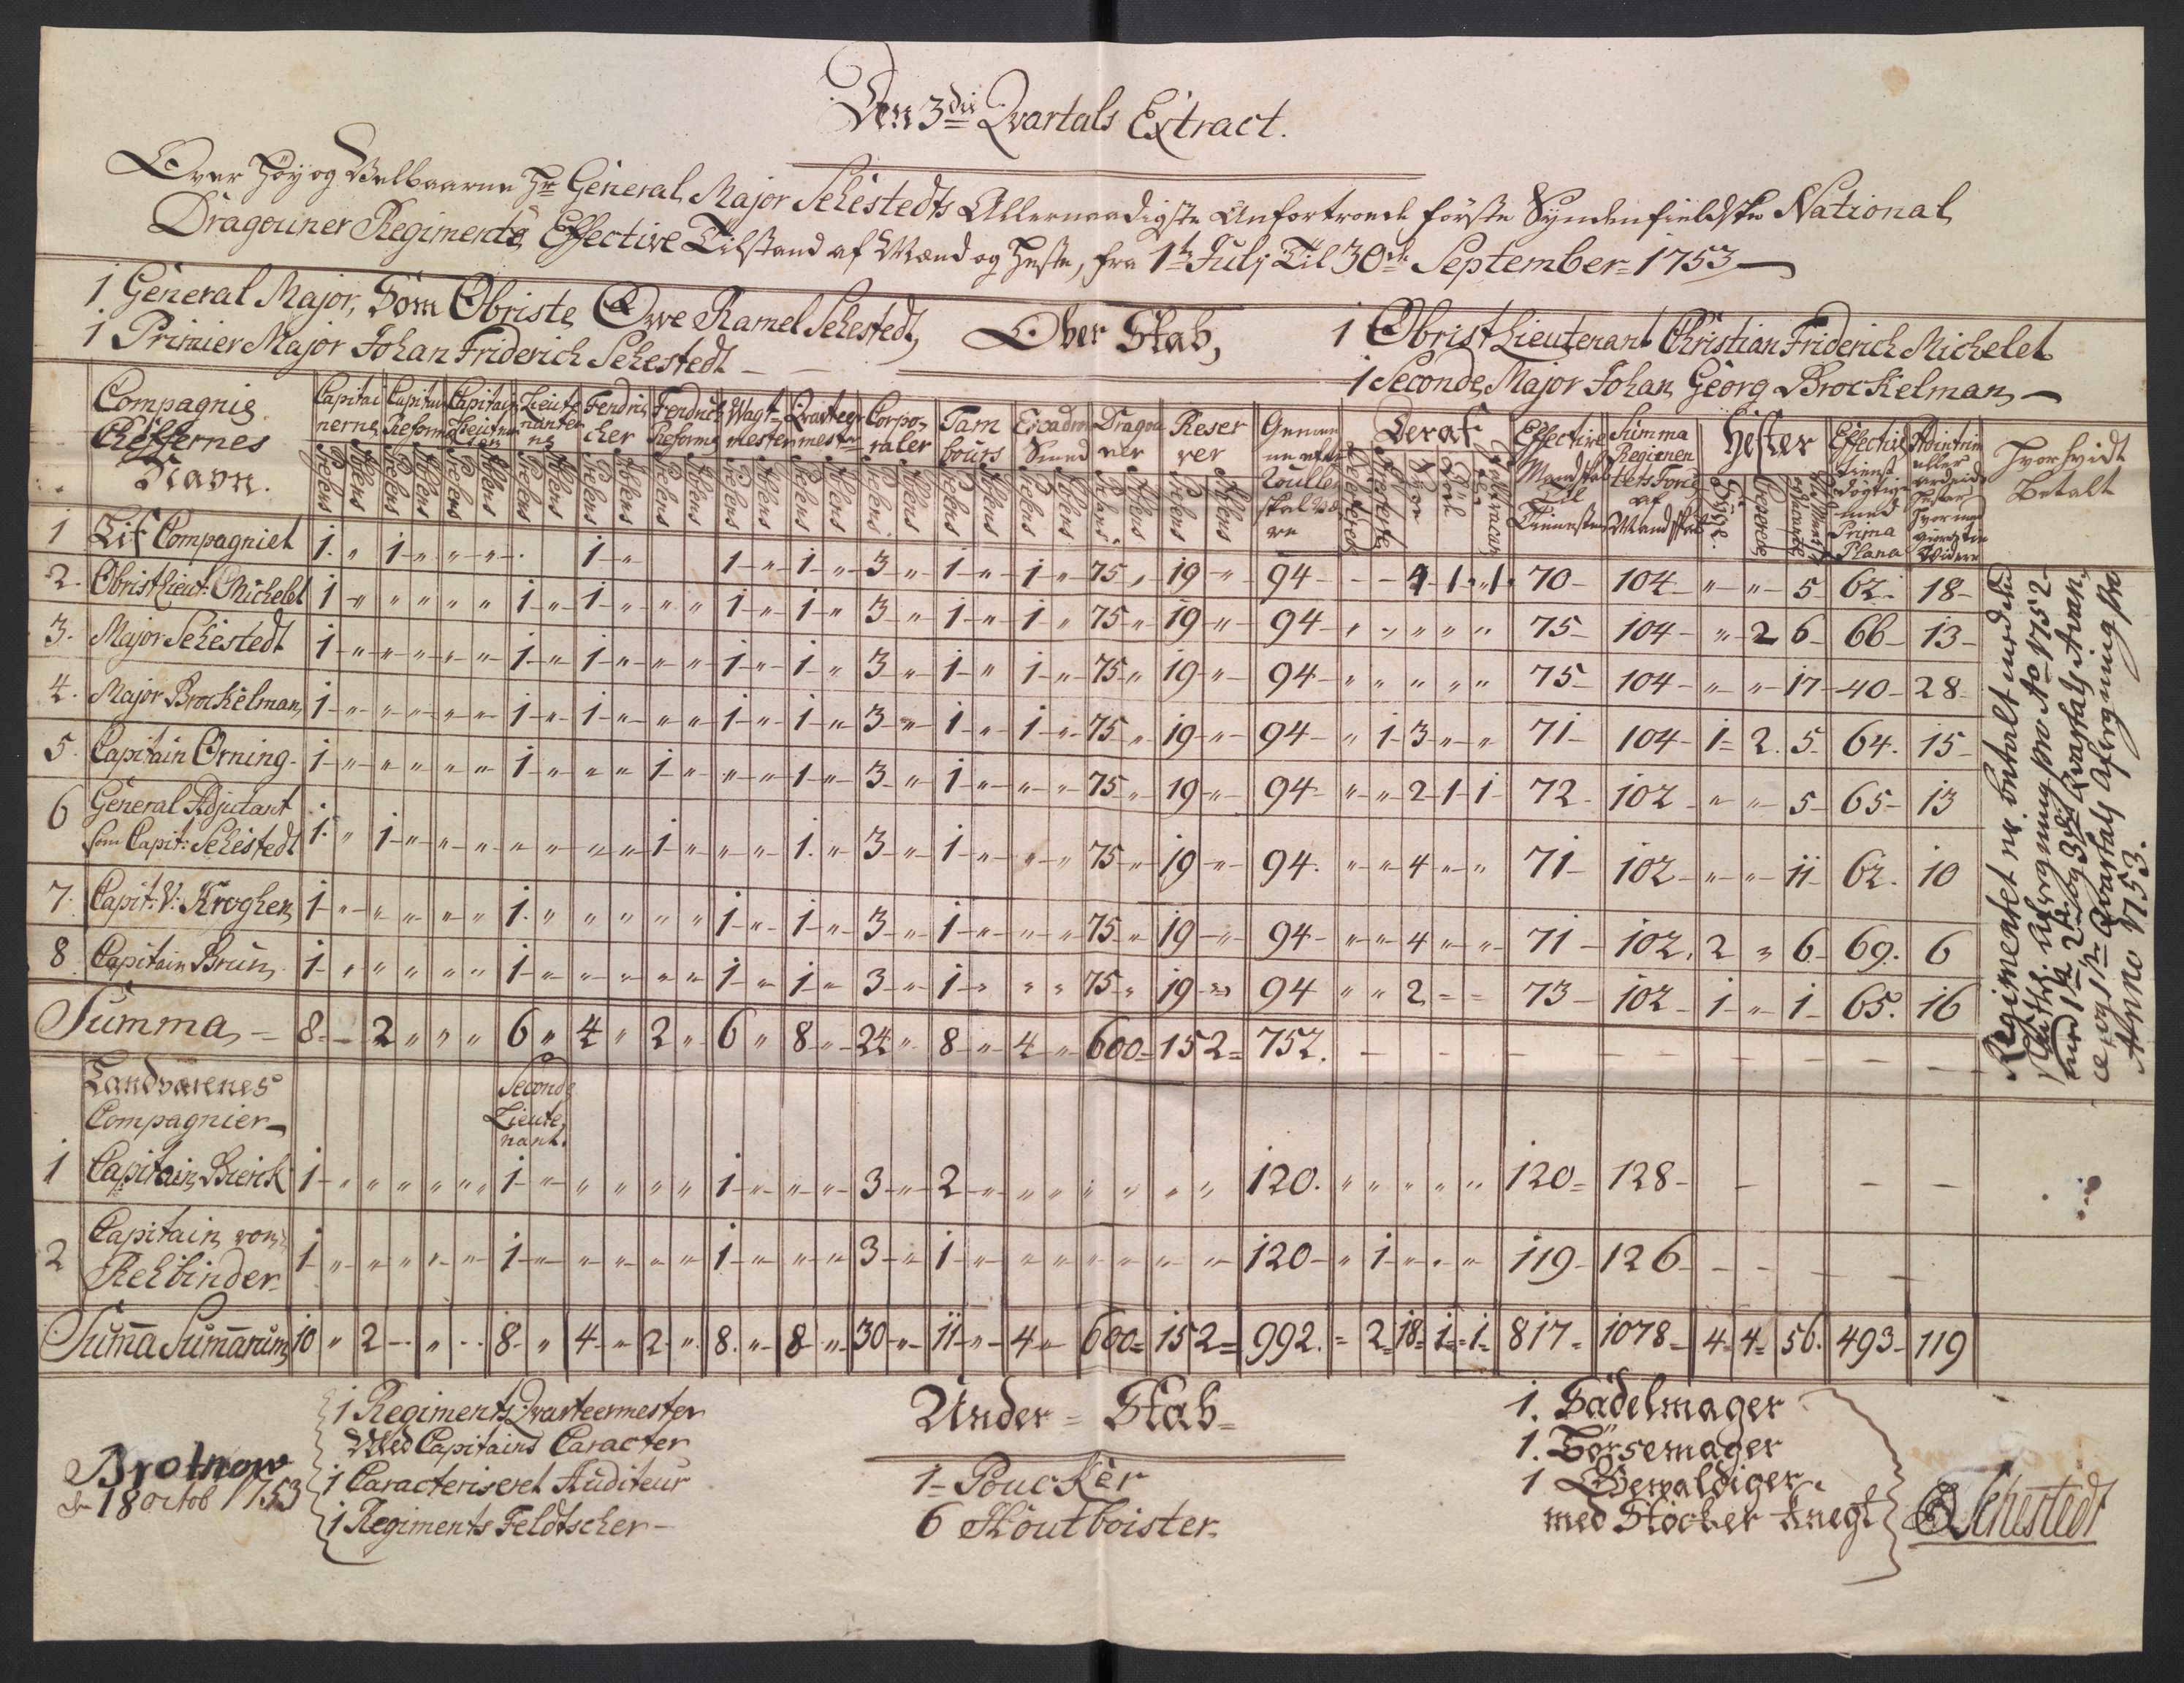 Den 3die Qvartals Extract.
Over Høy og Velbaarne Hr General Major Sehestedts Allernaadigste Anfortroede første Syndenfieldske National
Dragouner Regiments Effective Tilstand af Mænd og Heste, fra 1te July Til 30te September 1753
1 General Major, Som Obriste, Owe Ramel Sehestedt, Ober Stab, 1 Obrist Lieutenant Christian Friderich Michelet
1 Primier Major Johan Friderich Sehestedt 1 Seconde Major Johan Georg Brockelman
Compagnie Cheffernes Navn. Capitainerne Capitain Reforme Capitain Lieutnanten Lieutenanterne Fendricher Fendrich Reforme Wagtmester Qvarteermester Corporaler Tambours Escadron Smed Dragouner Reserver Deraf Effective Mandskab til Tienesten Summa Regimentets Force af Mandskab Hester Effective tienstdøgtige med Prima Plana Hvorvidt Betalt
1 Lif Compagniet 1. " 1 " " " " 1 " 1 " 1 " 3 " 1 " 1 " 75 " 19 " 94 - - 4 1 " 1 70 104 " " 5 62 18
2. Obrist Lieut: Michelet 1 " " " " " 1 " 1 " " " 1 " 1 " 3 " 1 " 1 " 75 " 19 " 94 " " " " " 75 104 " 2 6 66 13
3. Major Sehestedt 1 " " " " " 1 " 1 " " " 1 " 1 " 3 " 1 " 1 " 75 " 19 " 94 " " " " " 75 104 " " 17 40 28
4. Major Brockelman 1 " " " " " 1 " 1 " " " 1 " 1 " 3 " 1 " 1 " 75 " 19 " 94 " 1 3 " " 71 104 1 2. 5 64. 15
5. Capitain Orning 1 " " " " " 1 " " " 1 " " " 1 " 3 " 1 " " " 75 " 19 " 94 " " 2 1 1 72 102 " " 5 65 13
6 General Adjutant
som Capit: Sehestedt 1. " 1 " " " " " " " 1 " " " 1. " 3 " 1 " " " 75 " 19 " 94. " " 4 " " 71 102 " " 11 62. 10
7. Capit: V: Kroghen 1 " " " " " 1. " " " " " 1 " 1 " 3 " 1 " " " 75 " 19 " 94 " " 4 " " 71 102. 2 " 6 69. 6
8 Capitain Brun 1 " " " " " 1 " " " " " 1 " 1 " 3 " 1 " " " 75 " 19 " 94 " " 2 = = 73 102 1 " 1 65. 16
Summa 8 2 " " " 6 " 4 " 2 " 6 " 8 " 24 " 8 " 4 " 600 = 152 = 752. - - - - - - - - -
Landværnes
Compagnier Seconde Lieutenant.
1 Capitain Bierck 1 " " " " " 1 " " " " " 1 " " " 3 " 2 " " " " " " " 120. " " " " " 120 = 128 - - - -
2 Capitain von
Rehbinder 1 " " " " " 1 " " " " " 1 " " " 3 " 1 " " " " " " " 120 " 1 " " " 119 126 - - - - -
Suma Sumarum 10 " 2 - " - 8 " 4 " 2 " 8. " 8 " 30 " 11 " 4 " 600 = 152 = 992. = 2 = 18 = 1 = 1 = 817 = 1078 = 4 = 4 = 56. 493 119
Regimentet er betalt
Afregning pro Ao 1752
1te 2de og 3die Qvartals Avance
og 1te Qvartals Afregning pro
Anno 1753.
Under = Stab
1 Regiments Qvarteermester
Med Capitains Caracter
1 Caracteriseret Auditeur
1 Regiments Feldtscher
1 = Poucker
6 Houtboister
1. Sadelmager
1. Børsemager
1 Gewaldiger
med Stocker Knegt
Brotnow
den 18 octob 1753
O Sehestedt